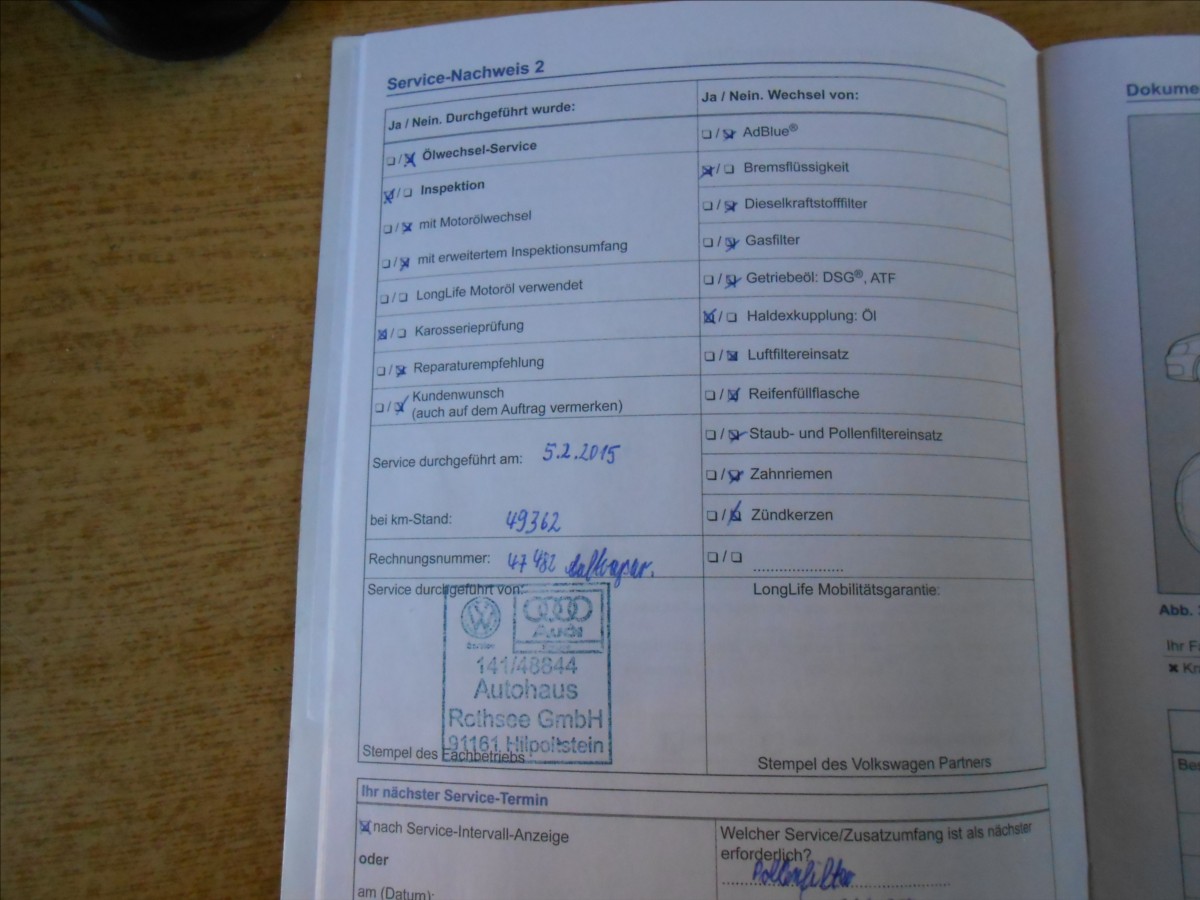 Service-Nachweis 2
Ja / Nein. Durchgeführt wurde:
☐ / ☒ Ölwechsel-Service
☒ / ☐ Inspektion
☐ / ☒ mit Motorölwechsel
☐ / ☒ mit erweitertem Inspektionsumfang
☐ / ☐ LongLife Motoröl verwendet
☒ / ☐ Karosserieprüfung
☐ / ☒ Reparaturempfehlung
☐ / ☒ Kundenwunsch
(auch auf dem Auftrag vermerken)
Service durchgeführt am: 5.2.2015
bei km-Stand: 49362
Rechnungsnummer: 47 482
Service durchgeführt von:
Audi
141/48644
Autohaus
Rothsee GmbH
91161 Hilpoltstein
Stempel des Fachbetriebs
Ja / Nein. Wechsel von:
☐ / ☒ AdBlue®
☒ / ☐ Bremsflüssigkeit
☐ / ☒ Dieselkraftstofffilter
☐ / ☒ Gasfilter
☐ / ☒ Getriebeöl: DSG®, ATF
☒ / ☐ Haldexkupplung: Öl
☐ / ☒ Luftfiltereinsatz
☐ / ☒ Reifenfüllflasche
☐ / ☒ Staub- und Pollenfiltereinsatz
☐ / ☒ Zahnriemen
☐ / ☒ Zündkerzen
☐ / ☐ ......................
LongLife Mobilitätsgarantie:
Stempel des Volkswagen Partners
Ihr nächster Service-Termin
☒ nach Service-Intervall-Anzeige
oder
am (Datum):
Welcher Service/Zusatzumfang ist als nächster
erforderlich?
Pollenfilter
Dokume
Abb.
Ihr F
✖ Kr
Bes